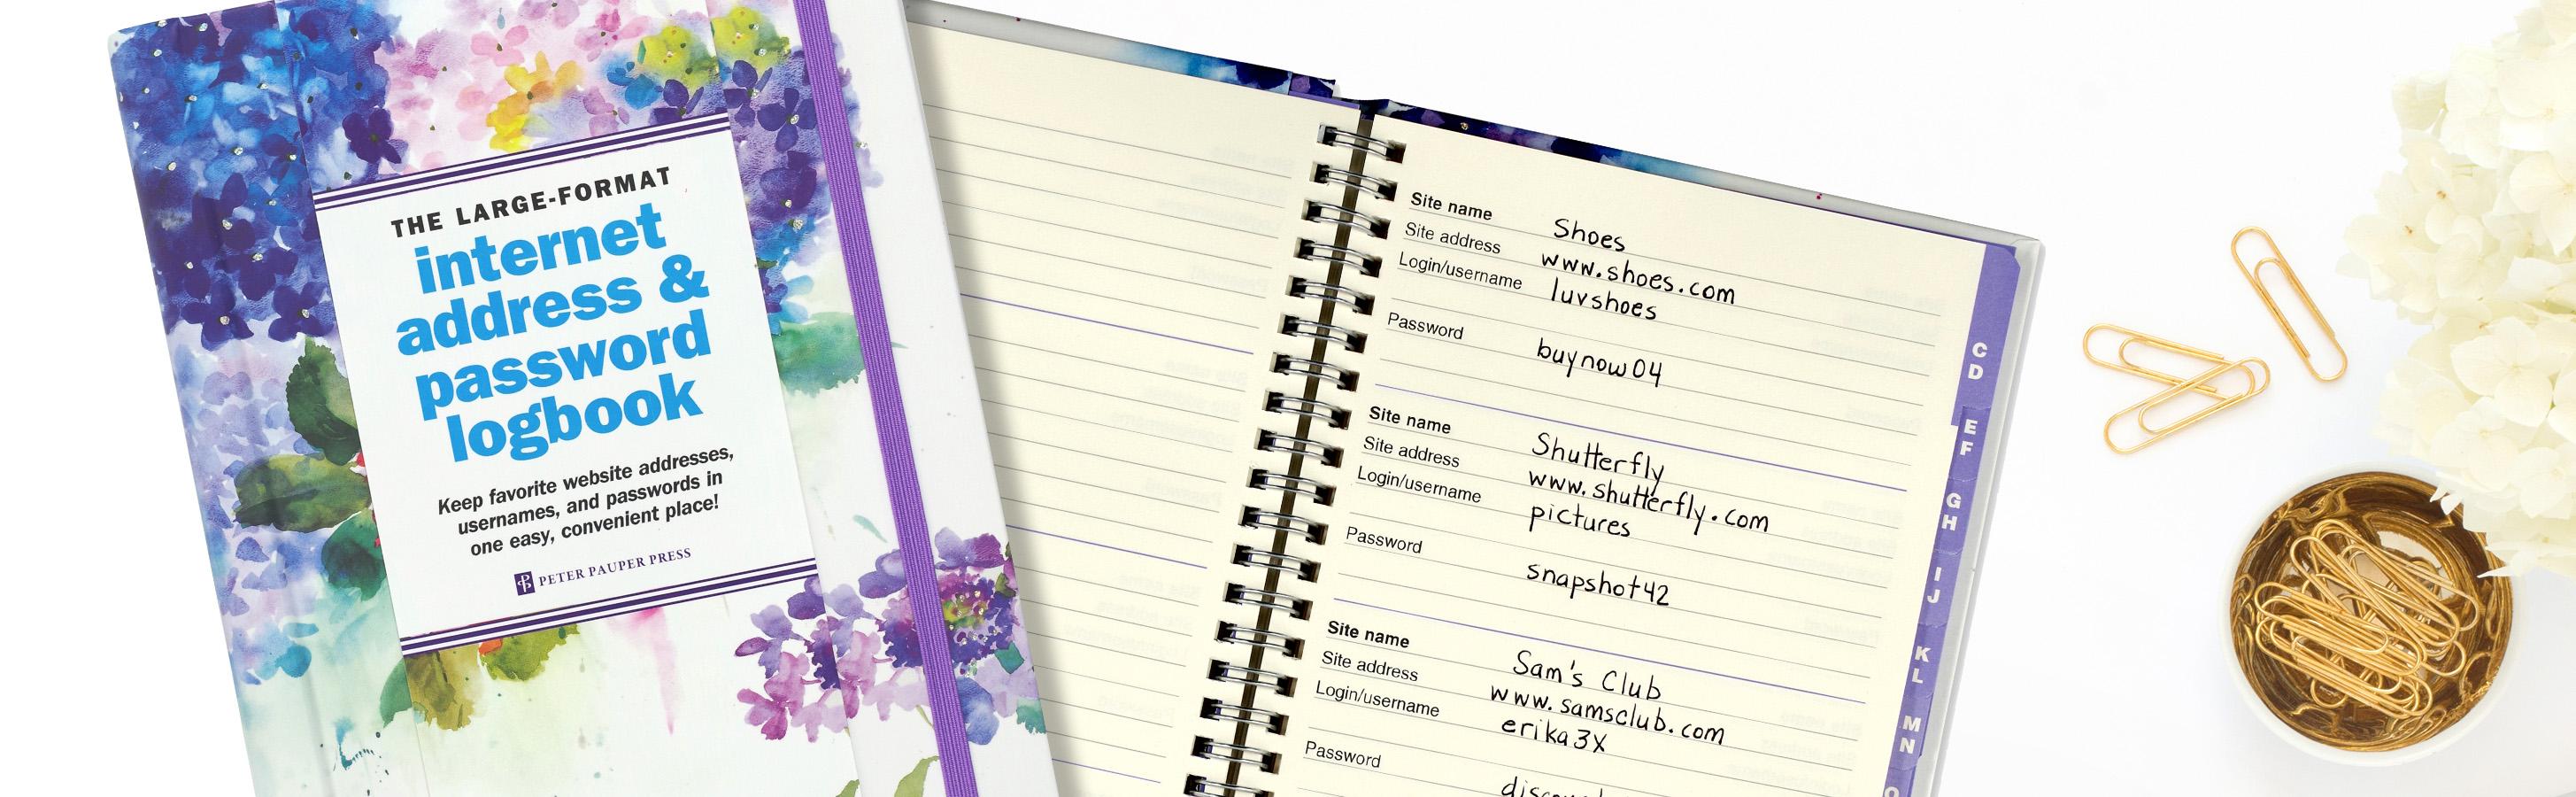 THE LARGE-FORMAT
internet
address &
password
logbook
Keep favorite website addresses,
usernames, and passwords in
one easy, convenient place!
PETER PAUPER PRESS
Site name Shoes
Site address www.shoes.com
Login/username luvshoes
Password buynow04
Site name Shutterfly
Site address www.shutterfly.com
Login/username pictures
Password snapshot42
Site name Sam's Club
Site address www.samsclub.com
Login/username erika3x
Password
C
D
E
F
G
H
I
J
K
L
M
N
O